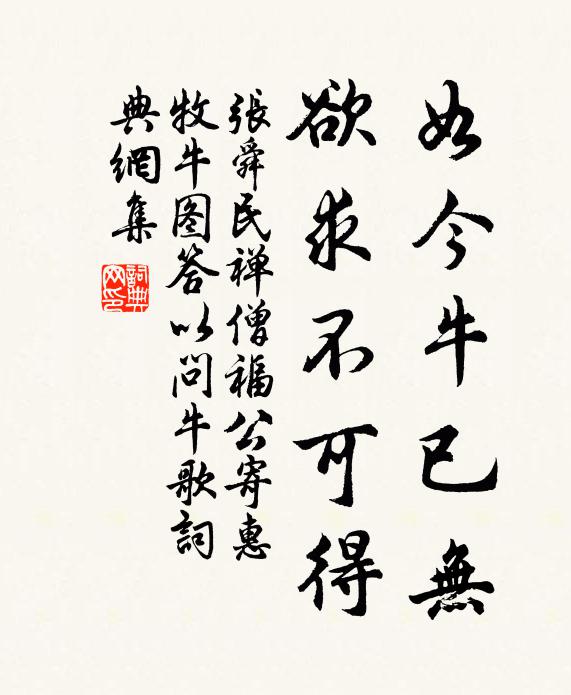 如今牛已無
欲求不可得
張舜民禅僧福公寄惠
牧牛图答以問牛歌詞
典網集
詞典网印